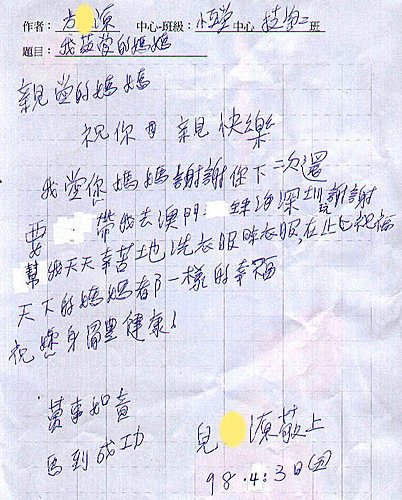 作者：方 源 中心-班級：恆愛 中心 技苗二 班
題目：我敬愛的媽媽
親愛的媽媽
祝你母親快樂
我愛你媽媽謝謝你下二次還
要 帶我去澳門 珠海深圳謝謝
幫我天天辛苦地洗衣服晾衣服,在此祝福
天下的媽媽都一樣的幸福
祝妳身體健康!
萬事如意
馬到成功
兒 源敬上
98.4.30(四)